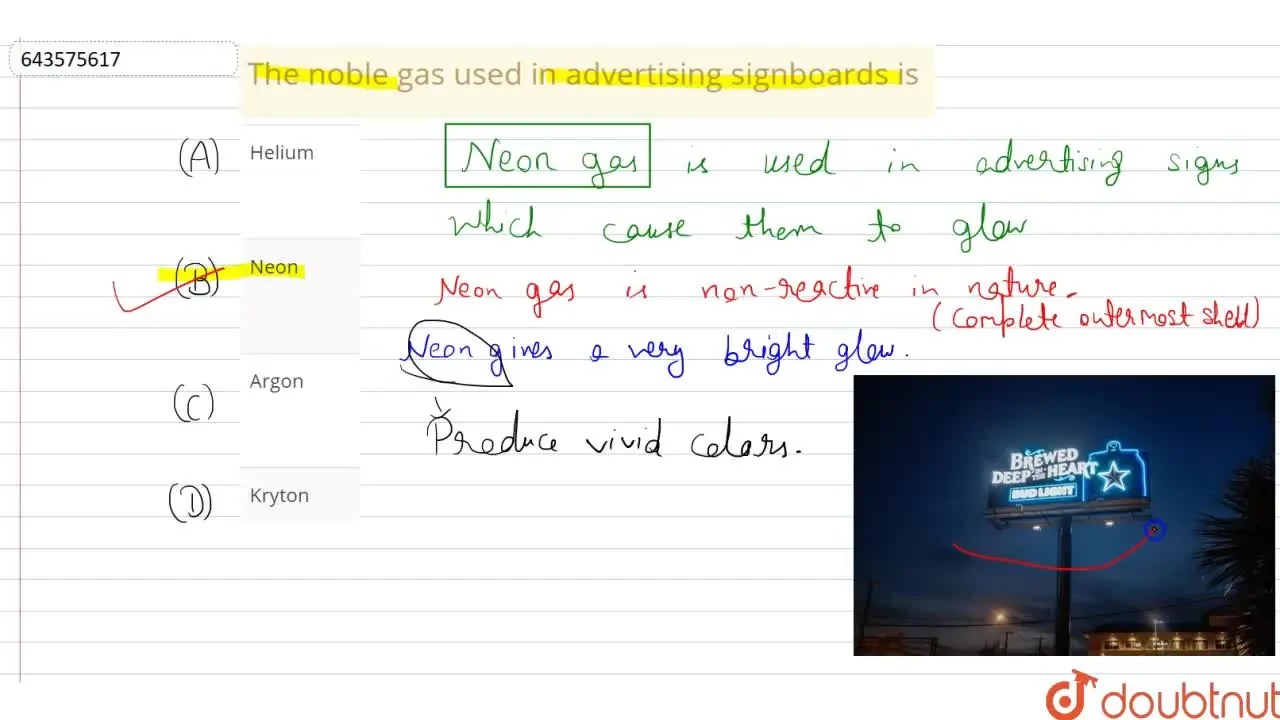 643575617
The noble gas used in advertising signboards is
(A) Helium
Neon gas is used in advertising signs
which cause them to glow
(B) Neon
Neon gas is non-reactive in nature.
(Complete outermost shell)
Neon gives a very bright glow.
(C) Argon
Produce vivid colors.
(D) Kryton
BREWED
DEEP IN THE HEART
BUD LIGHT
doubtnut